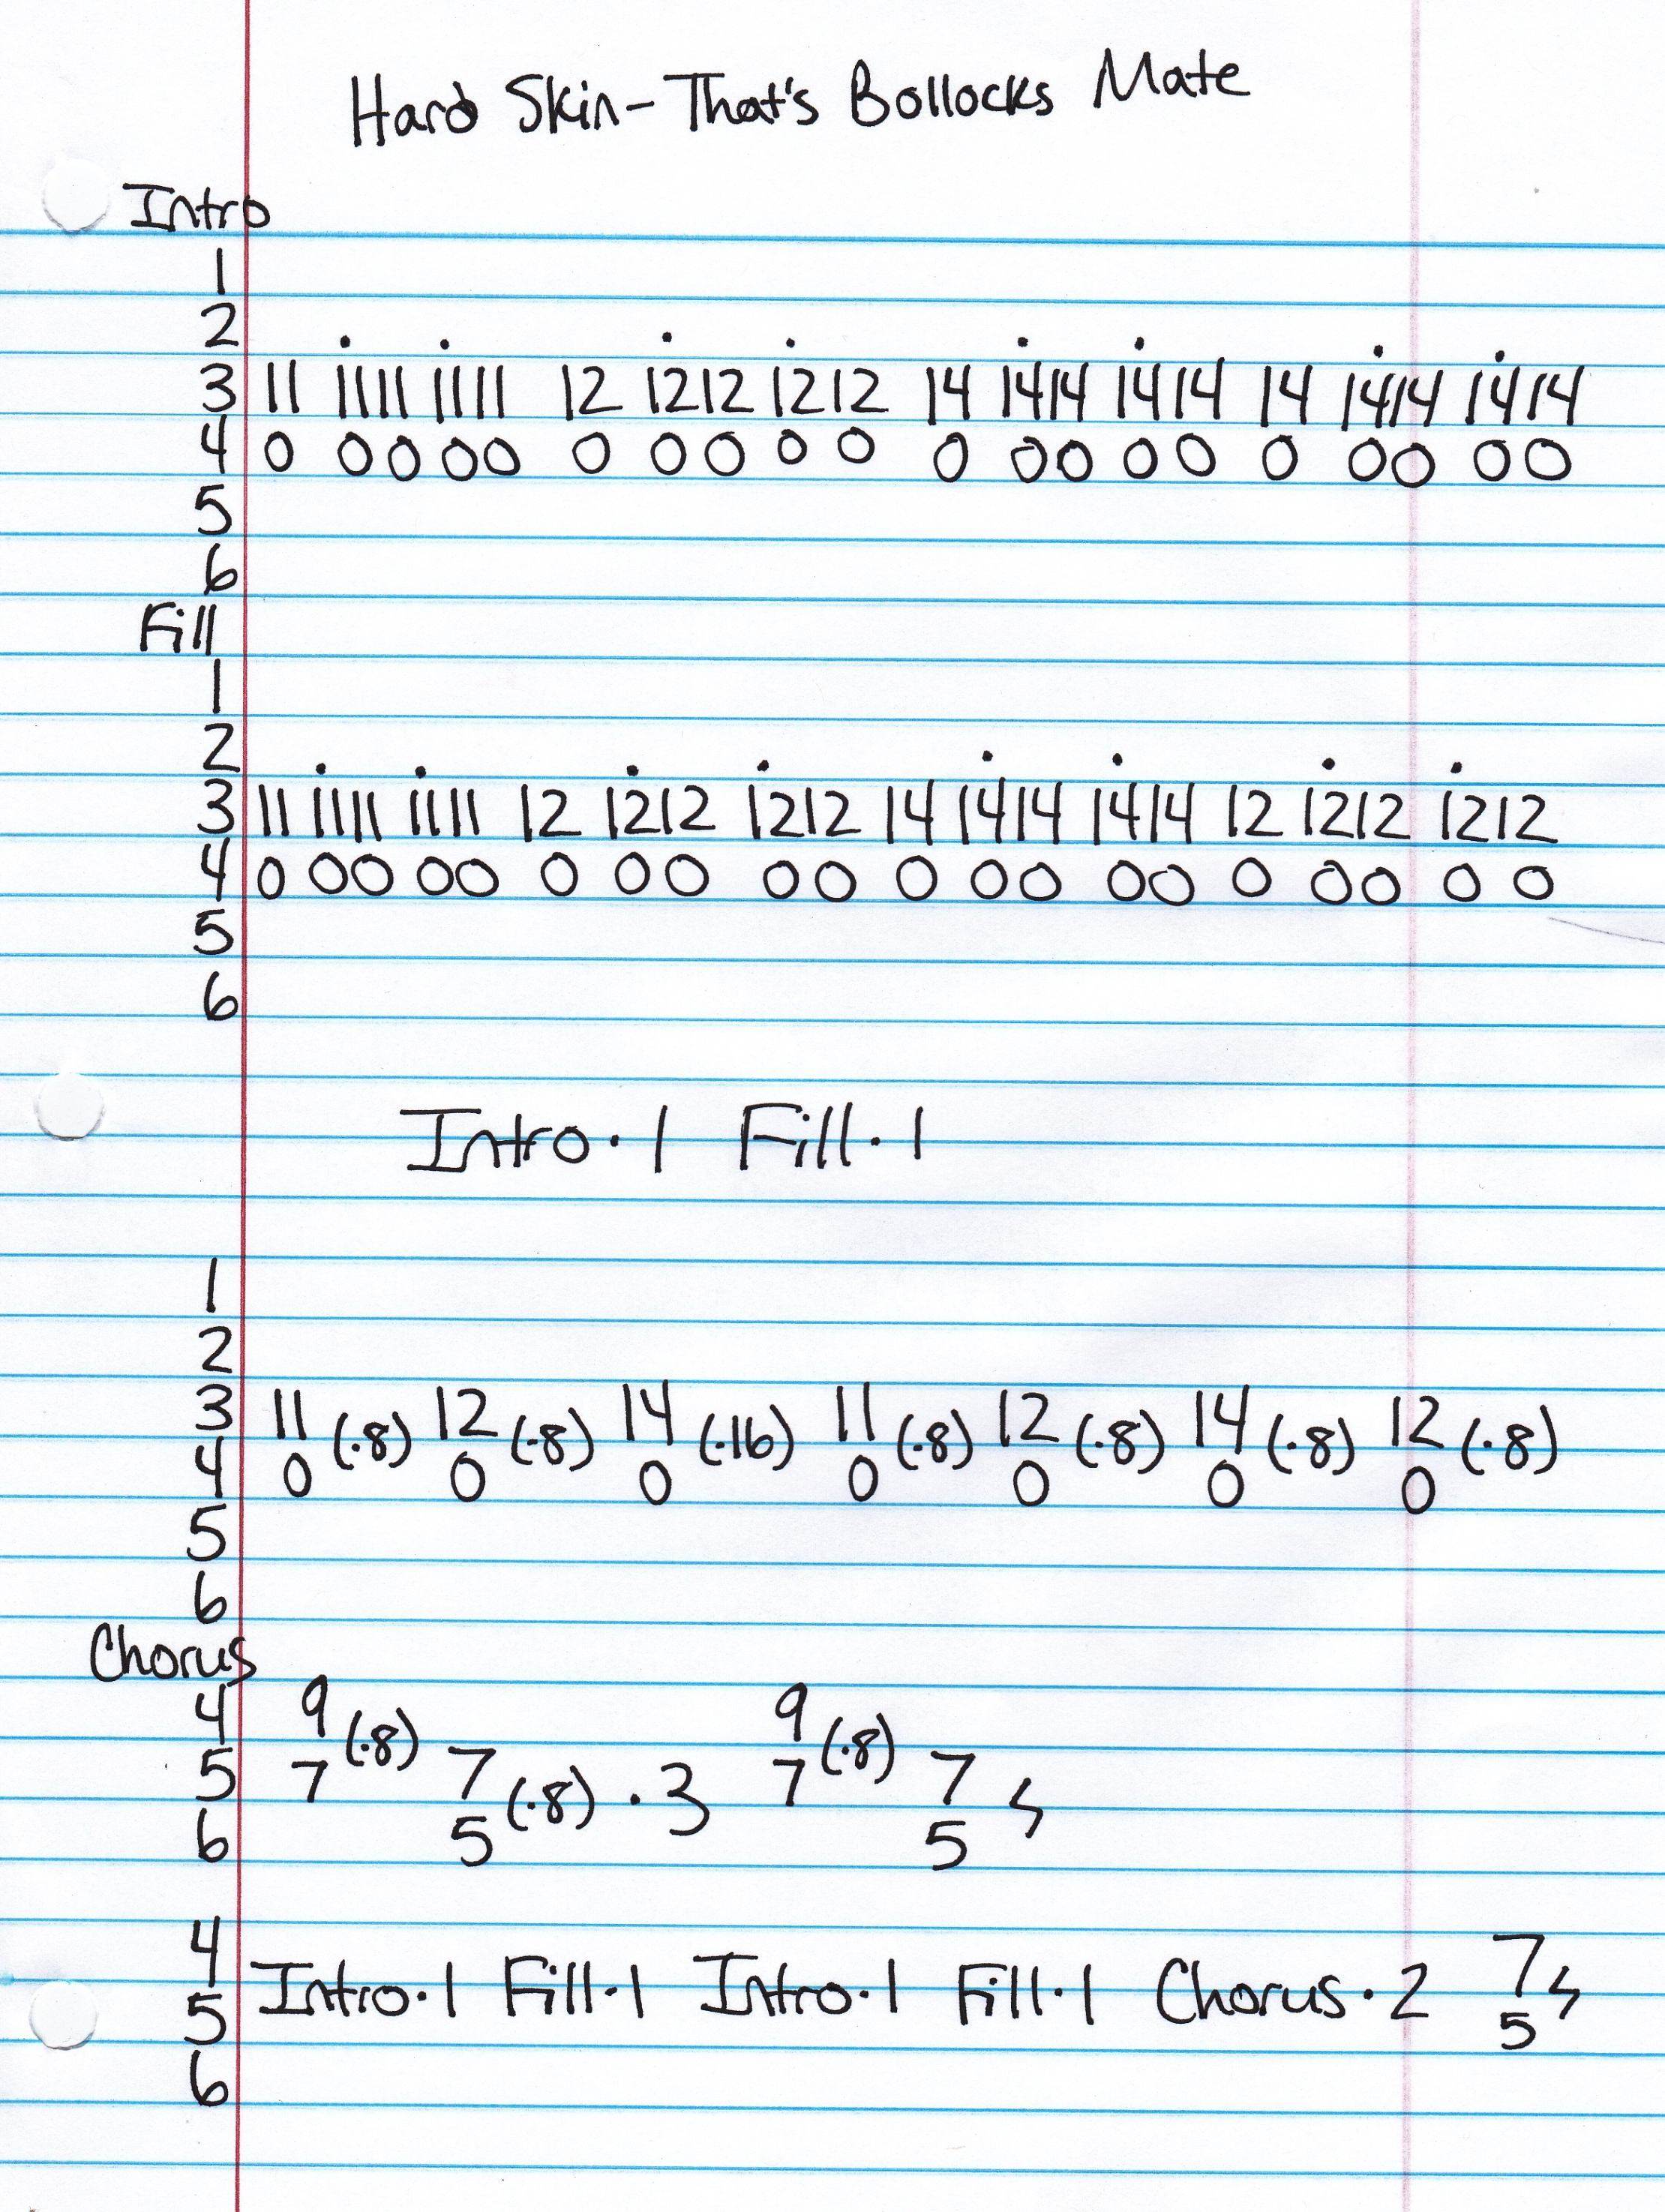 Hard Skin - That's Bollocks Mate
Intro
1
2
3 11 1111 1111 12 1212 1212 14 1414 1414 14 1414 1414
4 0 00 00 0 00 00 0 00 00 0 00 00
5
6
Fill
1
2
3 11 1111 1111 12 1212 1212 14 1414 1414 12 1212 1212
4 0 00 00 0 00 00 0 00 00 0 00 00
5
6
Intro·1 Fill·1
1
2
3 11 (·8) 12 (·8) 14 (·16) 11 (·8) 12 (·8) 14 (·8) 12 (·8)
4 0 0 0 0 0 0 0
5
6
Chorus
4 9 (·8) 9 (·8)
5 7 7 (·8) ·3 7 7 ϟ
6 5 5
4 7
5 Intro·1 Fill·1 Intro·1 Fill·1 Chorus·2 5 ϟ
6